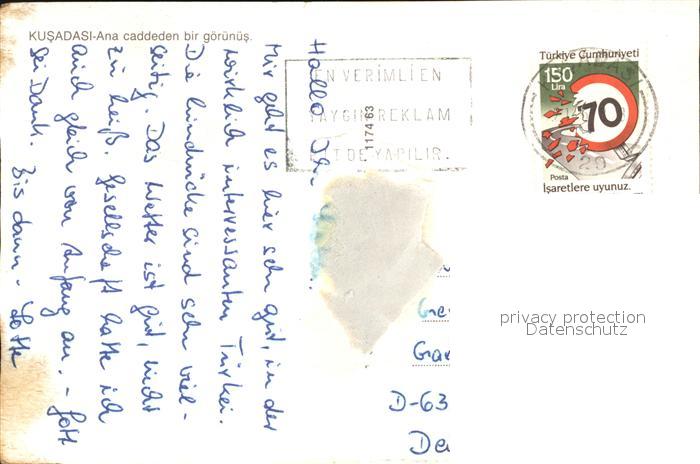 KUŞADASI-Ana caddeden bir görünüş.
Hallo
Mir geht es hier sehr gut, in der
wirklich interessanten Türkei.
Die Eindrücke sind sehr viel-
seitig. Das Wetter ist gut, nicht
zu heiß. Gesellschaft hatte ich
auch gleich von Anfang an. - Gott
sei Dank. Bis dann - Lotte
EN VERİMLİ EN
YAYGIN REKLAM
DE YAPILIR.
1174 63
Türkiye Cumhuriyeti
150
Lira
70
20
Posta
İşaretlere uyunuz.
Gar
D-63
privacy protection
Datenschutz